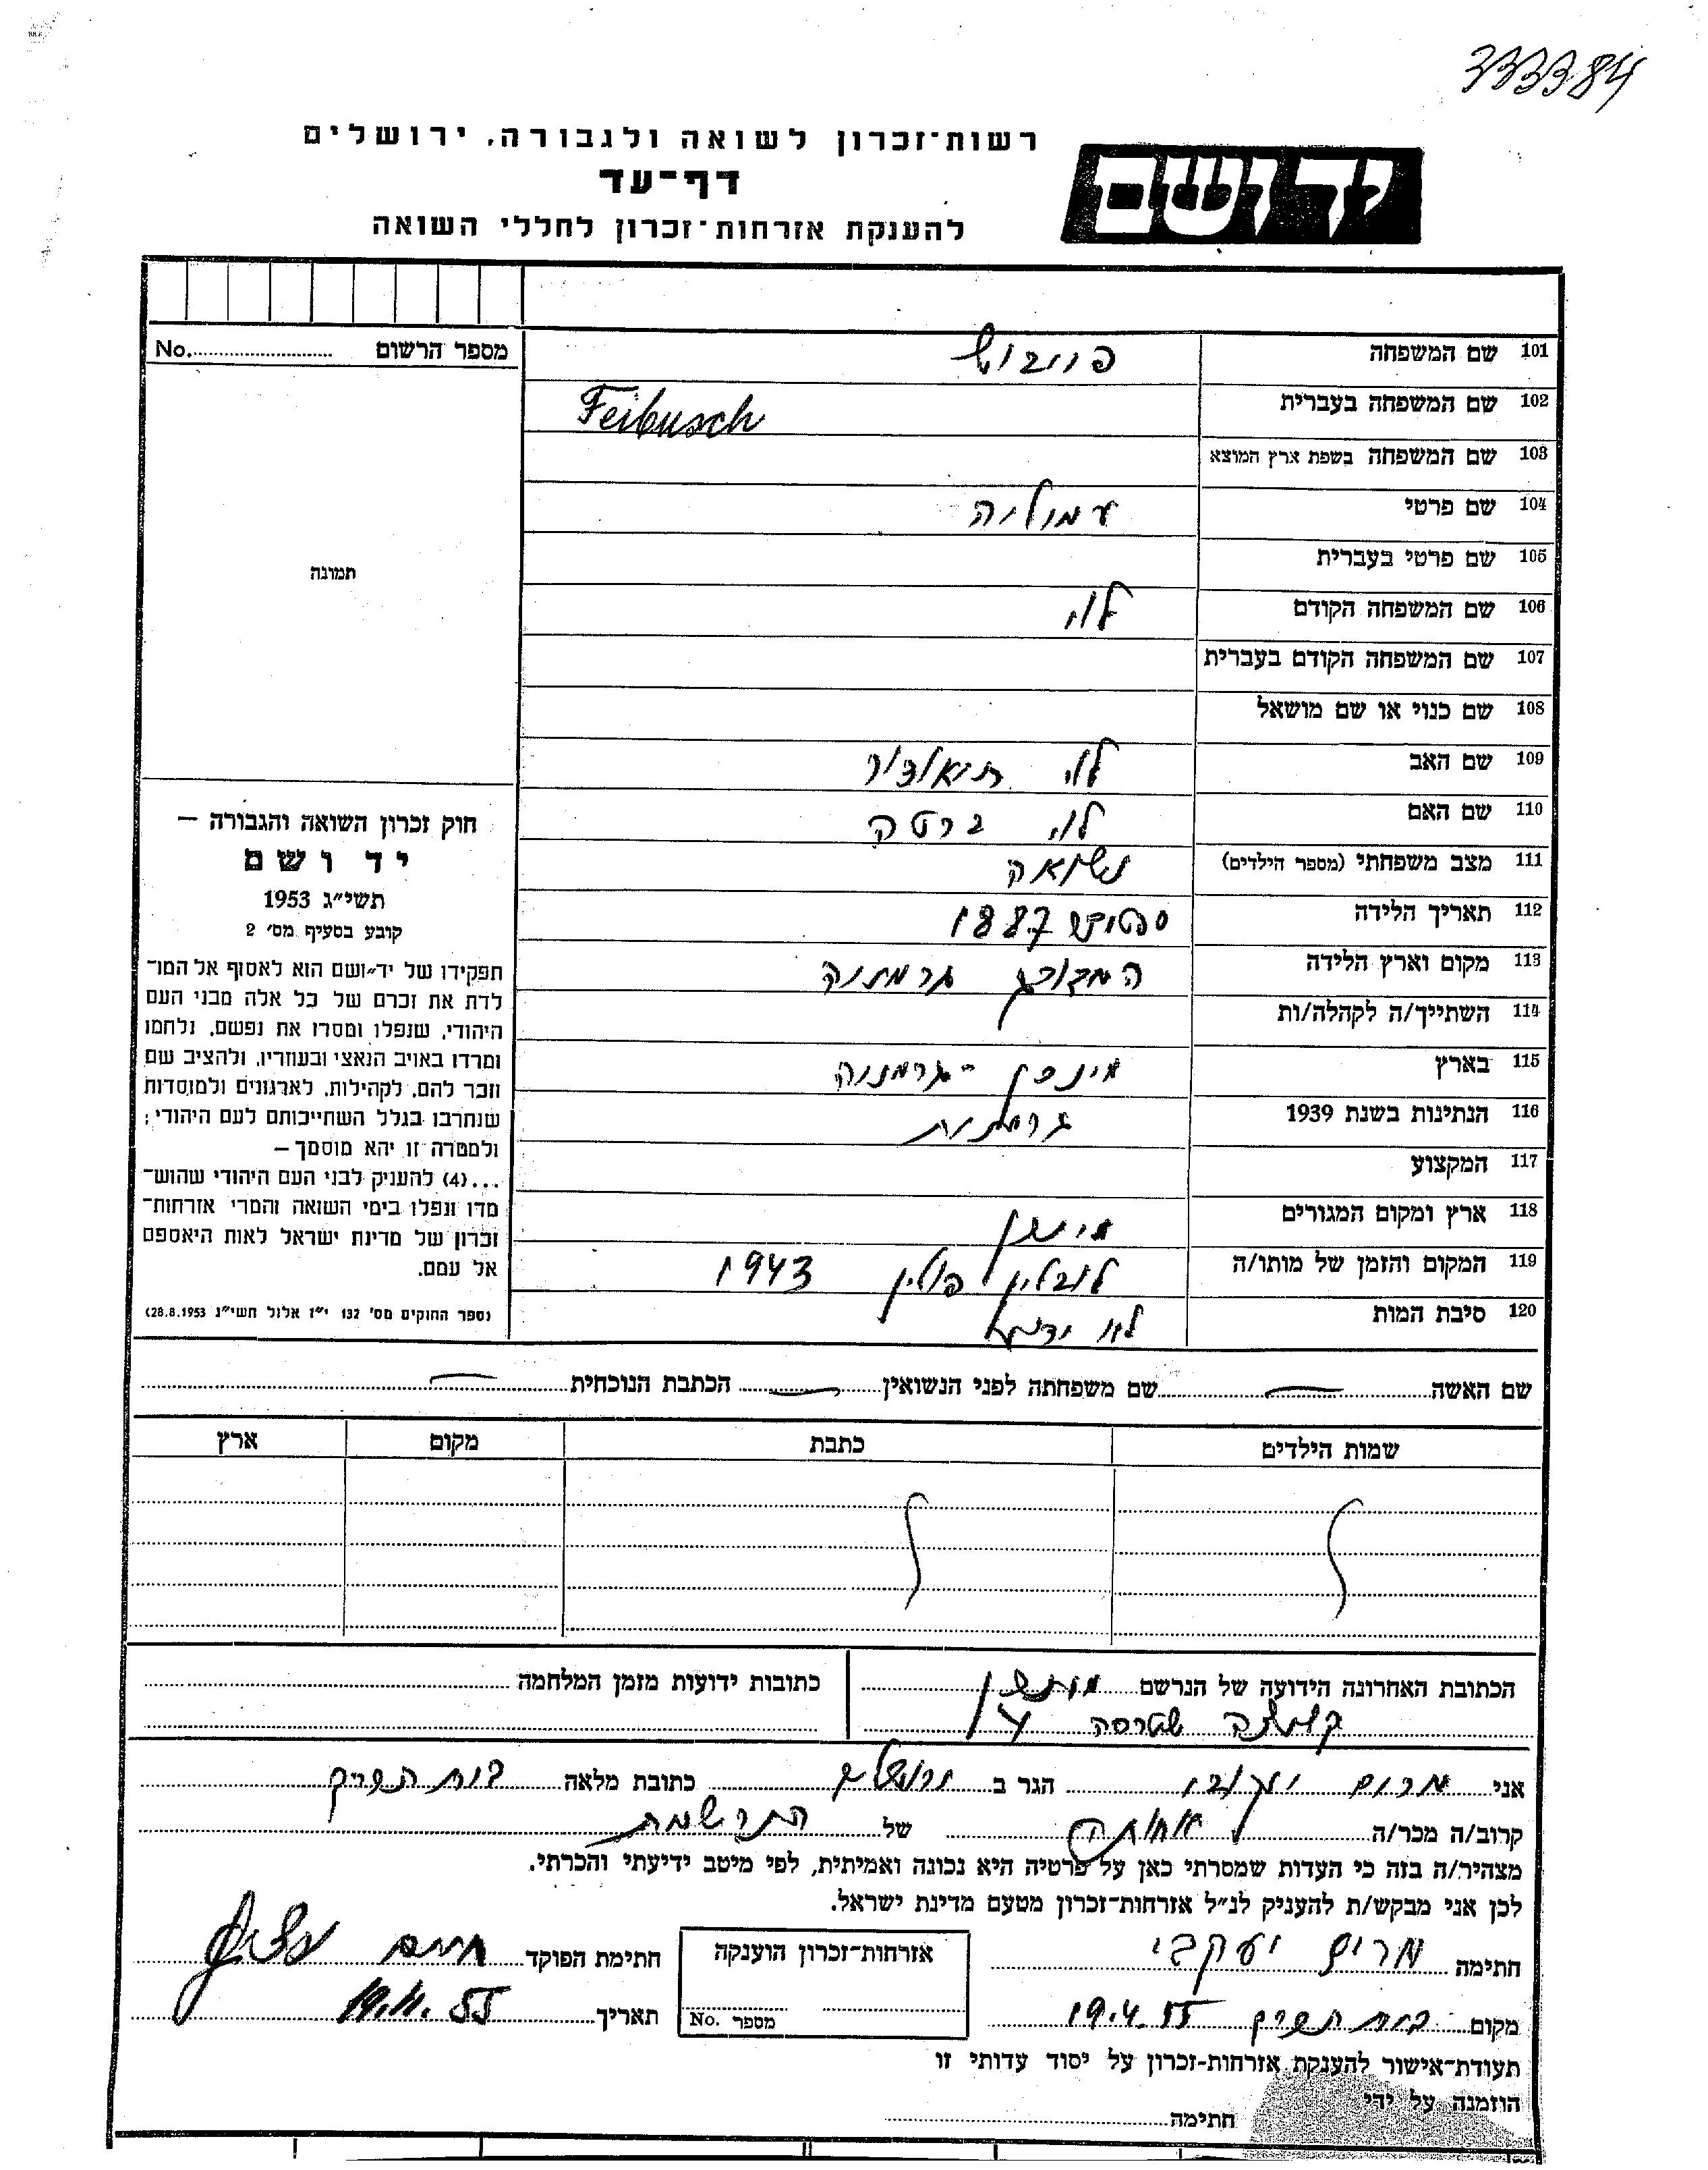 333384
רשות־זכרון לשואה ולגבורה, ירושלים
דף־עד
להענקת אזרחות־זכרון לחללי השואה
יד ושם
מספר הרשום No.
101 שם המשפחה פייבוש
102 שם המשפחה בעברית Feibusch
103 שם המשפחה בשפת ארץ המוצא
104 שם פרטי עמוליה
105 שם פרטי בעברית
106 שם המשפחה הקודם לוי
107 שם המשפחה הקודם בעברית
108 שם כנוי או שם מושאל
109 שם האב לוי תיאודור
110 שם האם לוי ברטה
111 מצב משפחתי (מספר הילדים) נשואה
112 תאריך הלידה 1887
113 מקום וארץ הלידה המבורג גרמניה
114 השתייך/ה לקהלה/ות
115 בארץ מינכן - גרמניה
116 הנתינות בשנת 1939 גרמנית
117 המקצוע
118 ארץ ומקום המגורים
119 המקום והזמן של מותו/ה לובלין פולין 1943
120 סיבת המות לא ידוע
תמונה
חוק זכרון השואה והגבורה —
יד ושם
תשי״ג 1953
קובע בסעיף מס׳ 2
תפקידו של יד־ושם הוא לאסוף אל המו־
לדת את זכרם של כל אלה מבני העם
היהודי, שנפלו ומסרו את נפשם, נלחמו
ומרדו באויב הנאצי ובעוזריו, ולהציב שם
וזכר להם, לקהילות, לארגונים ולמוסדות
שנחרבו בגלל השתייכותם לעם היהודי;
ולמטרה זו יהא מוסמך —
...(4) להעניק לבני העם היהודי שהוש־
מדו ונפלו בימי השואה והמרי אזרחות־
זכרון של מדינת ישראל לאות היאספם
אל עמם.
(ספר החוקים מס׳ 132 י״ז אלול תשי״ג 28.8.1953)
שם האשה — שם משפחתה לפני הנשואין — הכתבת הנוכחית —
שמות הילדים כתבת מקום ארץ
הכתובת האחרונה הידועה של הנרשם
שטרסה 4
כתובות ידועות מזמן המלחמה
אני מרים יעקבי הגר ב ירושלים כתובת מלאה
קרוב/ה מכר/ה אחותה של הנרשמת
מצהיר/ה בזה כי העדות שמסרתי כאן על פרטיה היא נכונה ואמיתית, לפי מיטב ידיעתי והכרתי.
לכן אני מבקש/ת להעניק לנ״ל אזרחות־זכרון מטעם מדינת ישראל.
חתימה מרים יעקבי
מקום 19.4.55
אזרחות־זכרון הוענקה
מספר No.
חתימת הפוקד חיים
תאריך 19.4.55
תעודת־אישור להענקת אזרחות־זכרון על יסוד עדותי זו
הוזמנה על ידי
חתימה